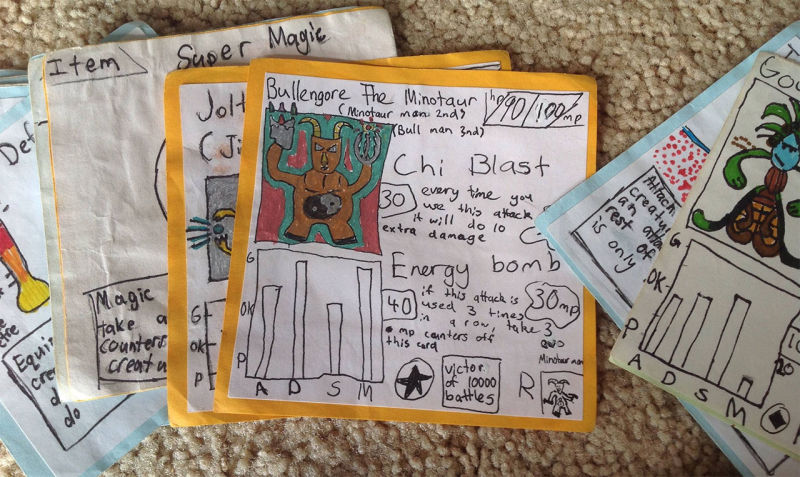 Item
Super Magic
Magic
take a
counters
creatu
Def
Equip
cre
d
do
Jolt
(Ji
G
OK
P
Bullengore The Minotaur
(Minotaur man 2nd)
(Bull man 3nd)
hp 90/100 mp
Chi Blast
30
every time you
use this attack
it will do 10
extra damage
Energy bomb
40
if this attack is
used 3 times
in a row, take 3
mp counters off
this card
30mp
G
OK
P
A D S M
victor
of 10000
battles
R
Minotaur man
Attach
creatu
an atta
rest of
is only
Go
G
OK
P
A D S M
20